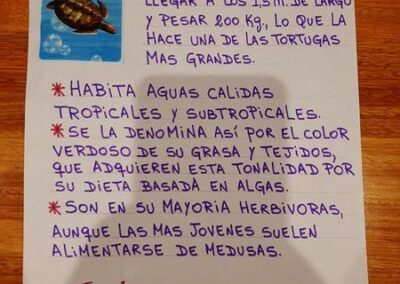 LLEGAR A LOS 1,5 M. DE LARGO
Y PESAR 200 KG, LO QUE LA
HACE UNA DE LAS TORTUGAS
MAS GRANDES.
* HABITA AGUAS CALIDAS
TROPICALES Y SUBTROPICALES.
* SE LA DENOMINA ASÍ POR EL COLOR
VERDOSO DE SU GRASA Y TEJIDOS,
QUE ADQUIEREN ESTA TONALIDAD POR
SU DIETA BASADA EN ALGAS.
* SON EN SU MAYORIA HERBIVORAS,
AUNQUE LAS MAS JOVENES SUELEN
ALIMENTARSE DE MEDUSAS.